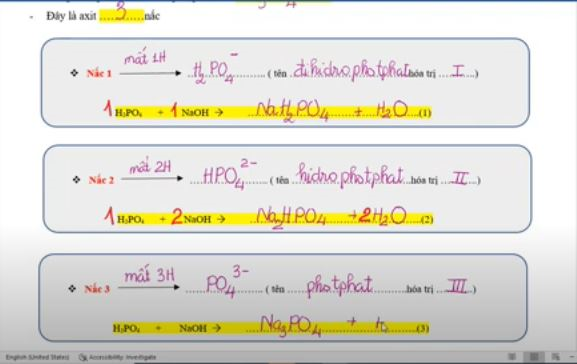 - Đây là axit ....3....nấc
❖ Nấc 1 mất 1H → H₂PO₄⁻ ( tên đihiđrophotphat hóa trị I )
1 H₃PO₄ + 1 NaOH → NaH₂PO₄ + H₂O (1)
❖ Nấc 2 mất 2H → HPO₄²⁻ ( tên hiđrophotphat hóa trị II )
1 H₃PO₄ + 2 NaOH → Na₂HPO₄ + 2H₂O (2)
❖ Nấc 3 mất 3H → PO₄³⁻ ( tên photphat hóa trị III )
H₃PO₄ + NaOH → Na₃PO₄ + H (3)
English (United States) Accessibility: Investigate